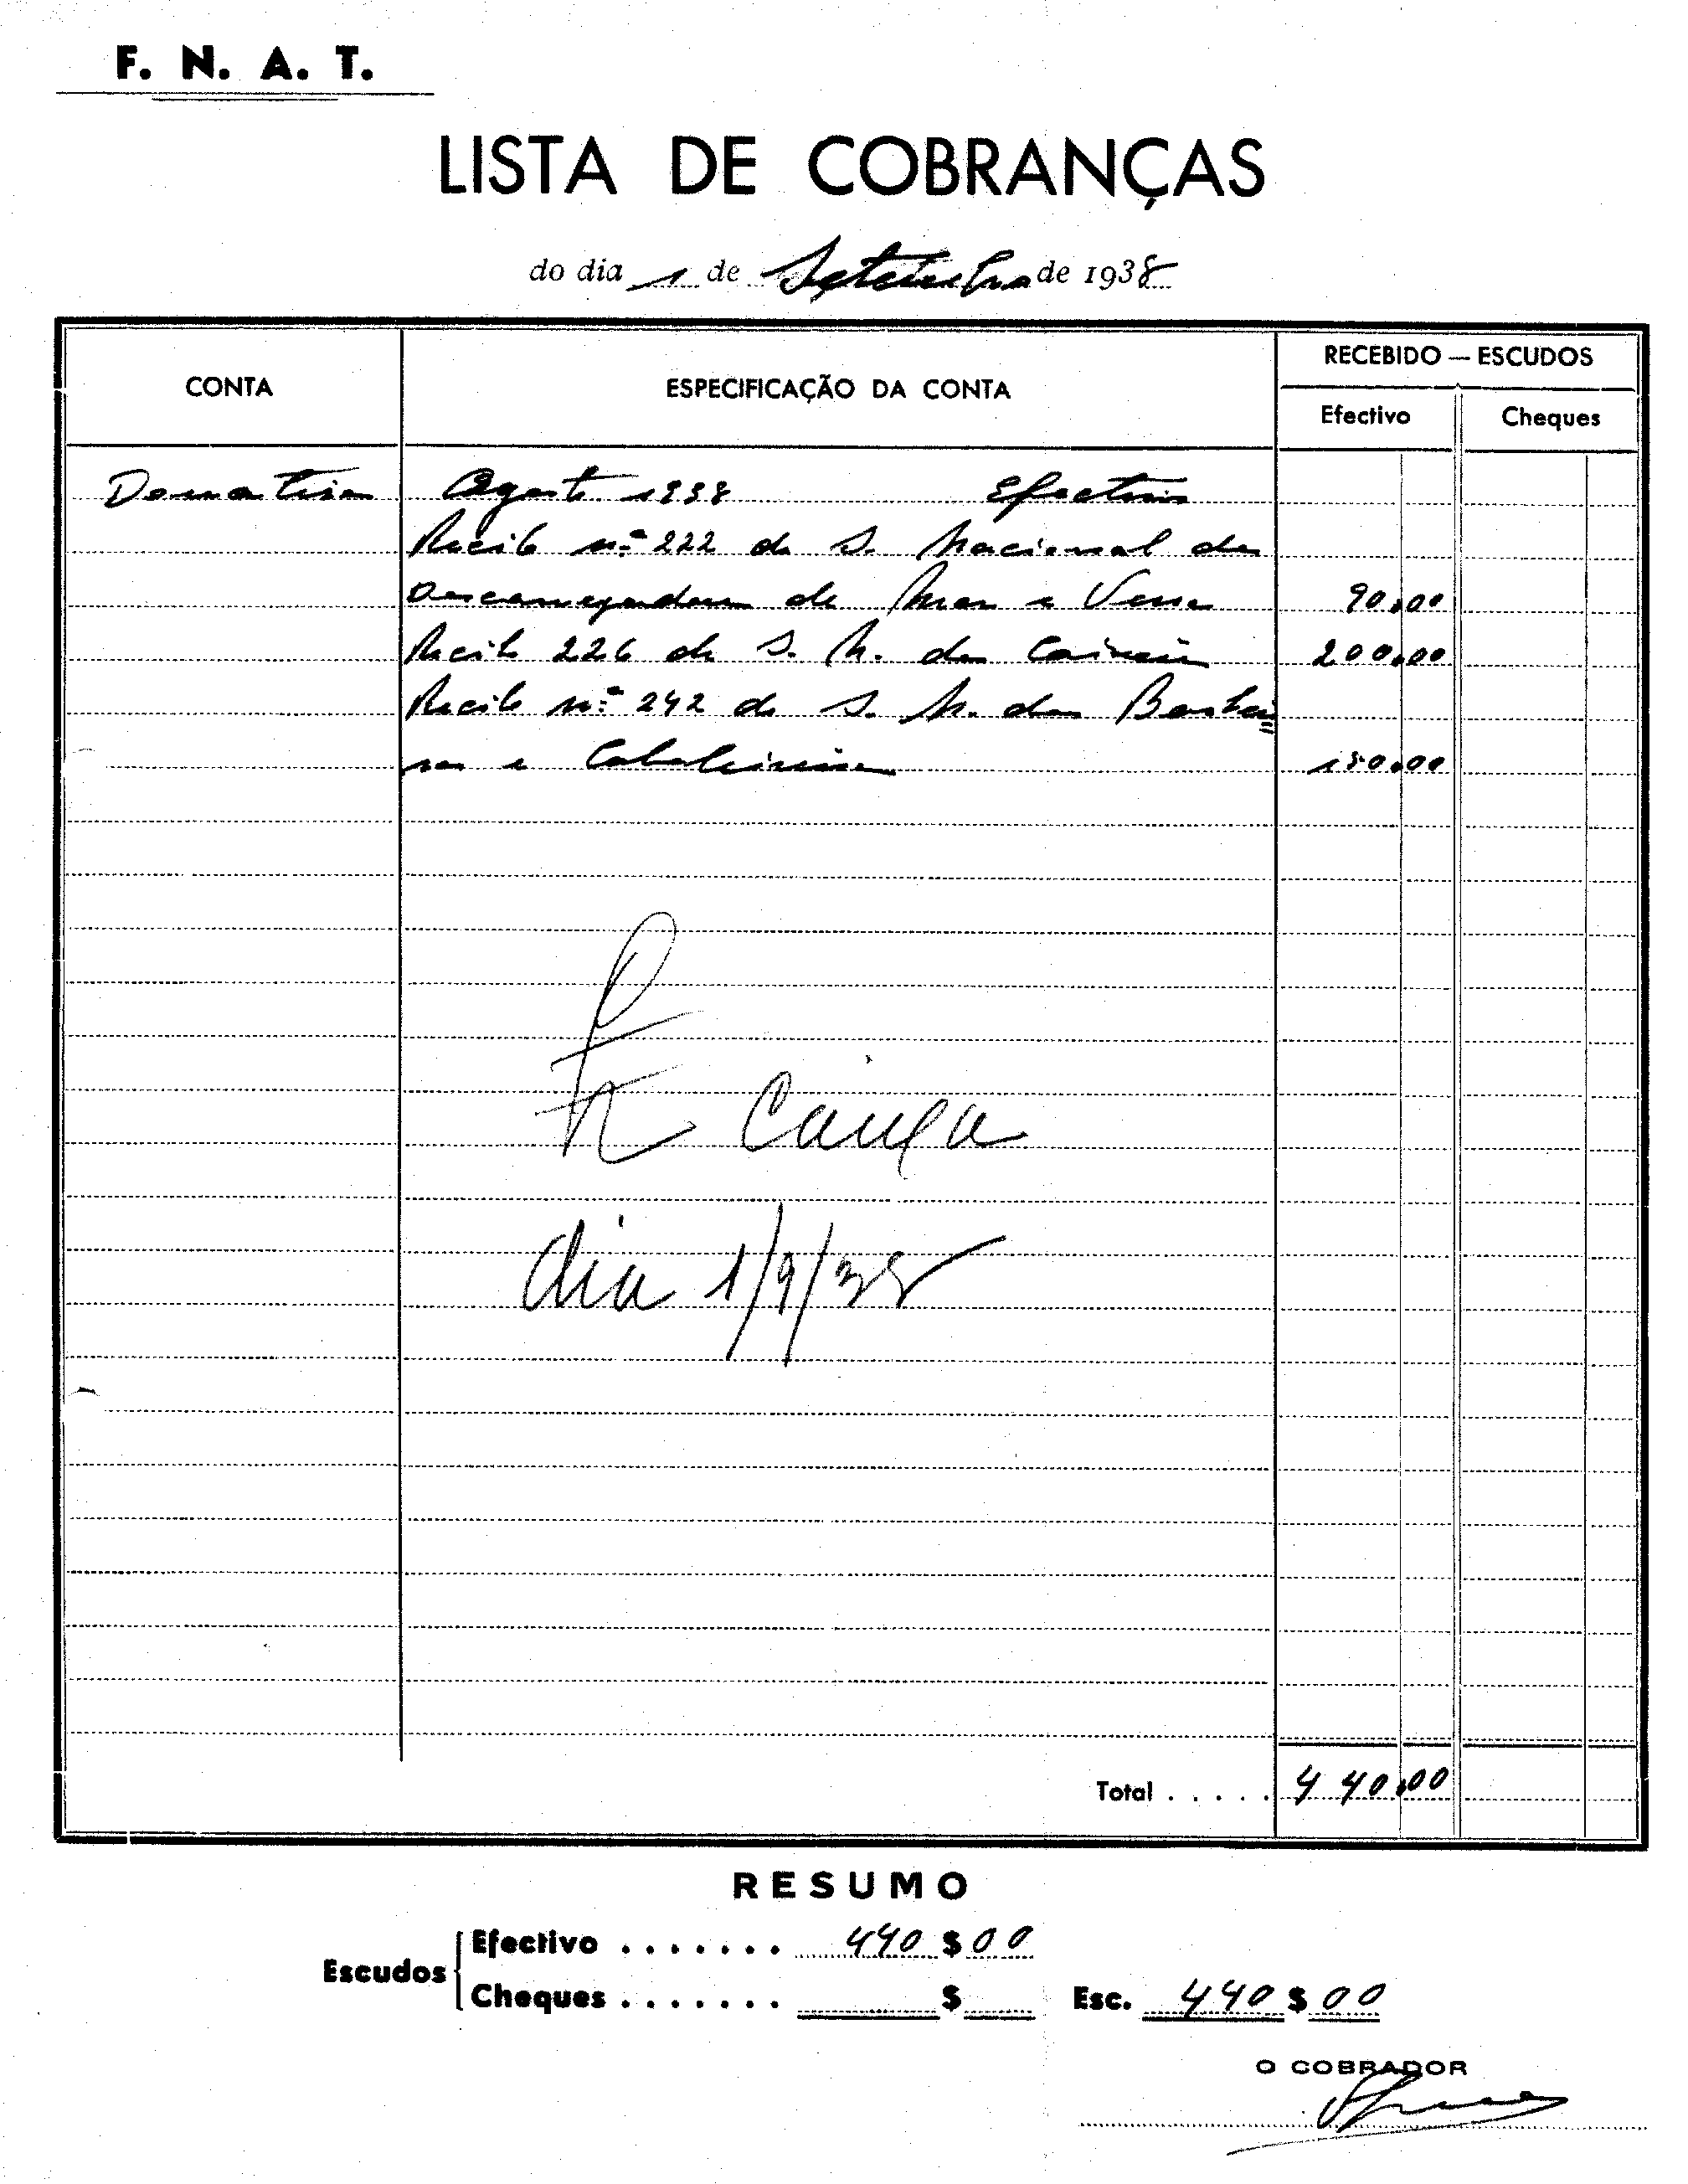 F. N. A. T.
LISTA DE COBRANÇAS
do dia 1 de Setembro de 1938
CONTA ESPECIFICAÇÃO DA CONTA RECEBIDO — ESCUDOS
Efectivo Cheques
Agosto 1938 Efectivos
Recibo n.º 222 do S. Nacional dos
Descarregadores de Mar e Terra 90.00
Recibo 226 do S. N. dos Caixeiros 200.00
Recibo n.º 242 do S. N. dos Barbei=
ros e Cabeleireiros 150.00
Caixa
dia 1/9/38
Total ..... 440.00
RESUMO
Escudos Efectivo ....... 440 $ 00
Cheques ....... $ Esc. 440 $ 00
O COBRADOR